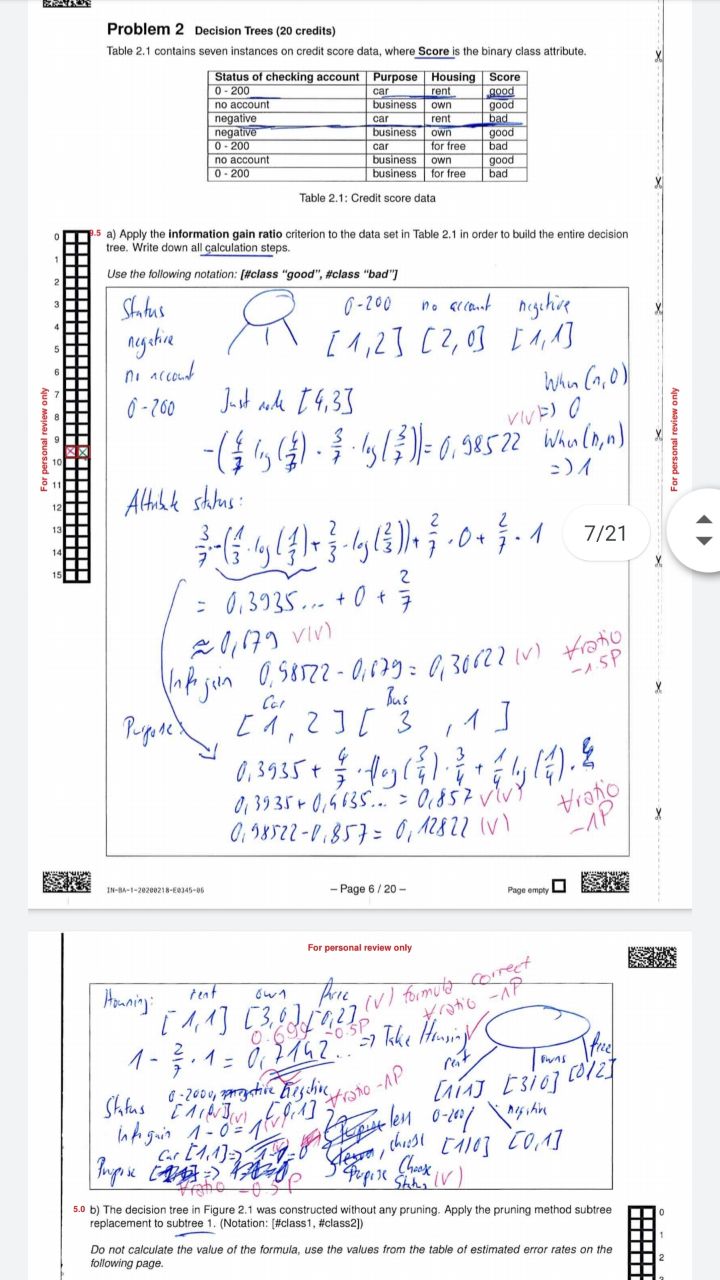 Problem 2 Decision Trees (20 credits)
Table 2.1 contains seven instances on credit score data, where Score is the binary class attribute.
Status of checking account Purpose Housing Score
0 - 200 car rent good
no account business own good
negative car rent bad
negative business own good
0 - 200 car for free bad
no account business own good
0 - 200 business for free bad
Table 2.1: Credit score data
9.5 a) Apply the information gain ratio criterion to the data set in Table 2.1 in order to build the entire decision
tree. Write down all calculation steps.
Use the following notation: [#class "good", #class "bad"]
0
1
2
3
4
5
6
7
8
9
10
11
12
13
14
15
For personal review only
For personal review only
Status 0-200 no account negative
negative [1,2] [2,0] [1,1]
no account When (n,0)
0-200 Just node [4,3] v(v) => 0
-(4/7 log(4/7) · 3/7 · log(3/7)) = 0,98522 When (n,n)
=> 1
Attribute status:
3/7 · -(1/3 · log(1/3) + 2/3 · log(2/3)) + 2/7 · 0 + 2/7 · 1
7/21
= 0,3935... + 0 + 2/7
≈ 0,679 v(v)
Info gain 0,98522 - 0,679 = 0,30622 (v) ∀ratio
-1.5P
Car Bus
Purpose: [1,2] [3,1]
0,3935 + 4/7 · -(log(3/4) · 3/4 + 1/4 log(1/4)) ·
0,3935 + 0,4635... = 0,857 v(v) ∀ratio
0,98522 - 0,857 = 0,12822 (v) -1P
IN-BA-1-20200218-E0345-06
– Page 6 / 20 –
Page empty
For personal review only
Housing: rent own free (v) formula correct
[1,1] [3,0] [0,2] ∀ratio -1P
0.699 -0.5P
1 - 2/7 · 1 = 0,7142... => Take Housing
rent owns free
[1,1] [3,0] [0,2]
0-200 negative ∀ratio -1P
Status [1,0] (v) [0,1] less 0-200 negative
Info gain 1-0 = 1 (v) choose [1,0] [0,1]
Car [1,1] => 1-1=0
Purpose => Purpose Choose
∀ratio -0.5P Status (v)
5.0 b) The decision tree in Figure 2.1 was constructed without any pruning. Apply the pruning method subtree
replacement to subtree 1. (Notation: [#class1, #class2])
Do not calculate the value of the formula, use the values from the table of estimated error rates on the
following page.
0
1
2